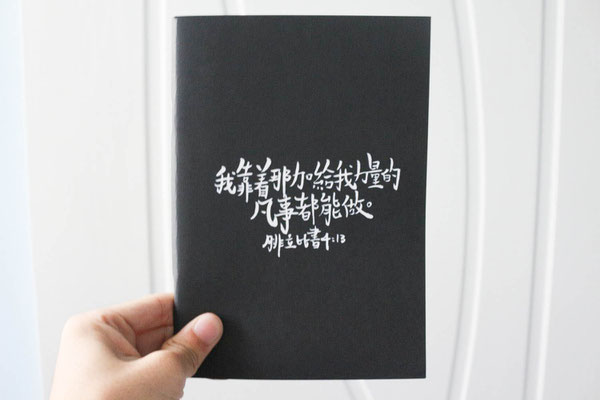 我靠着那加給我力量的
凡事都能做。
腓立比書4:13